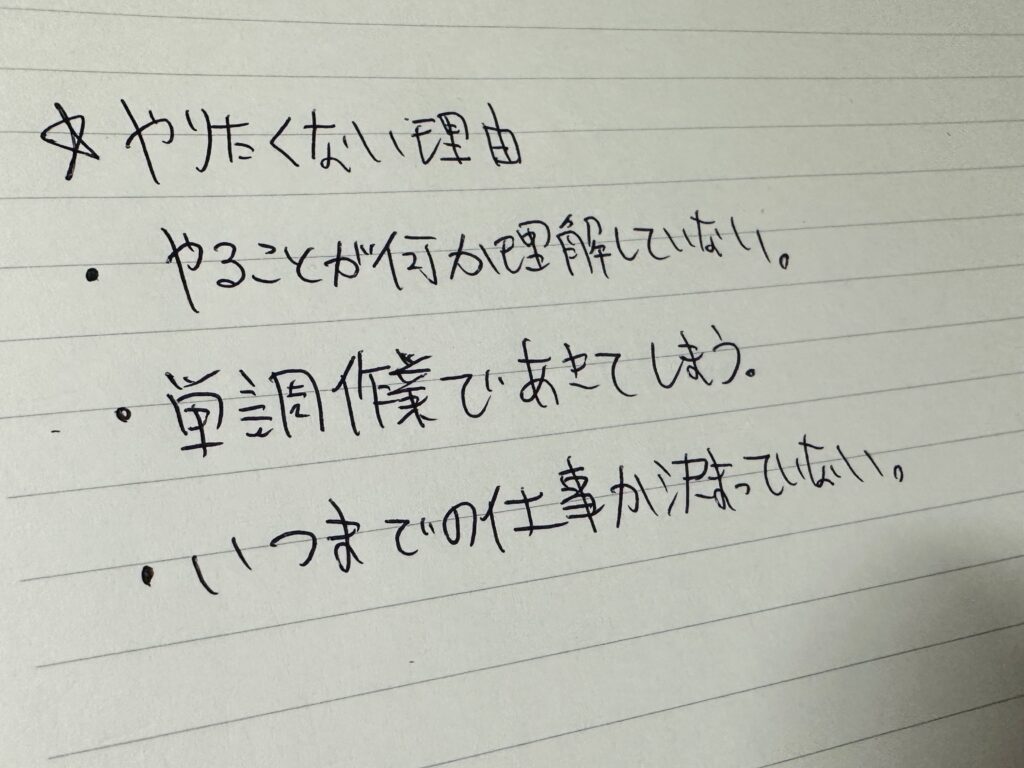 ☆やりたくない理由
・やることが何か理解していない。
・単調作業であきてしまう。
・いつまでの仕事か決まっていない。